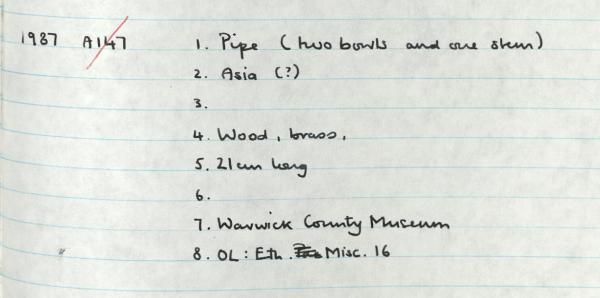 1987 A147 1. Pipe (two bowls and one stem)
2. Asia (?)
3.
4. Wood, brass,
5. 21cm long
6.
7. Warwick County Museum
8. OL: Eth. Misc. 16